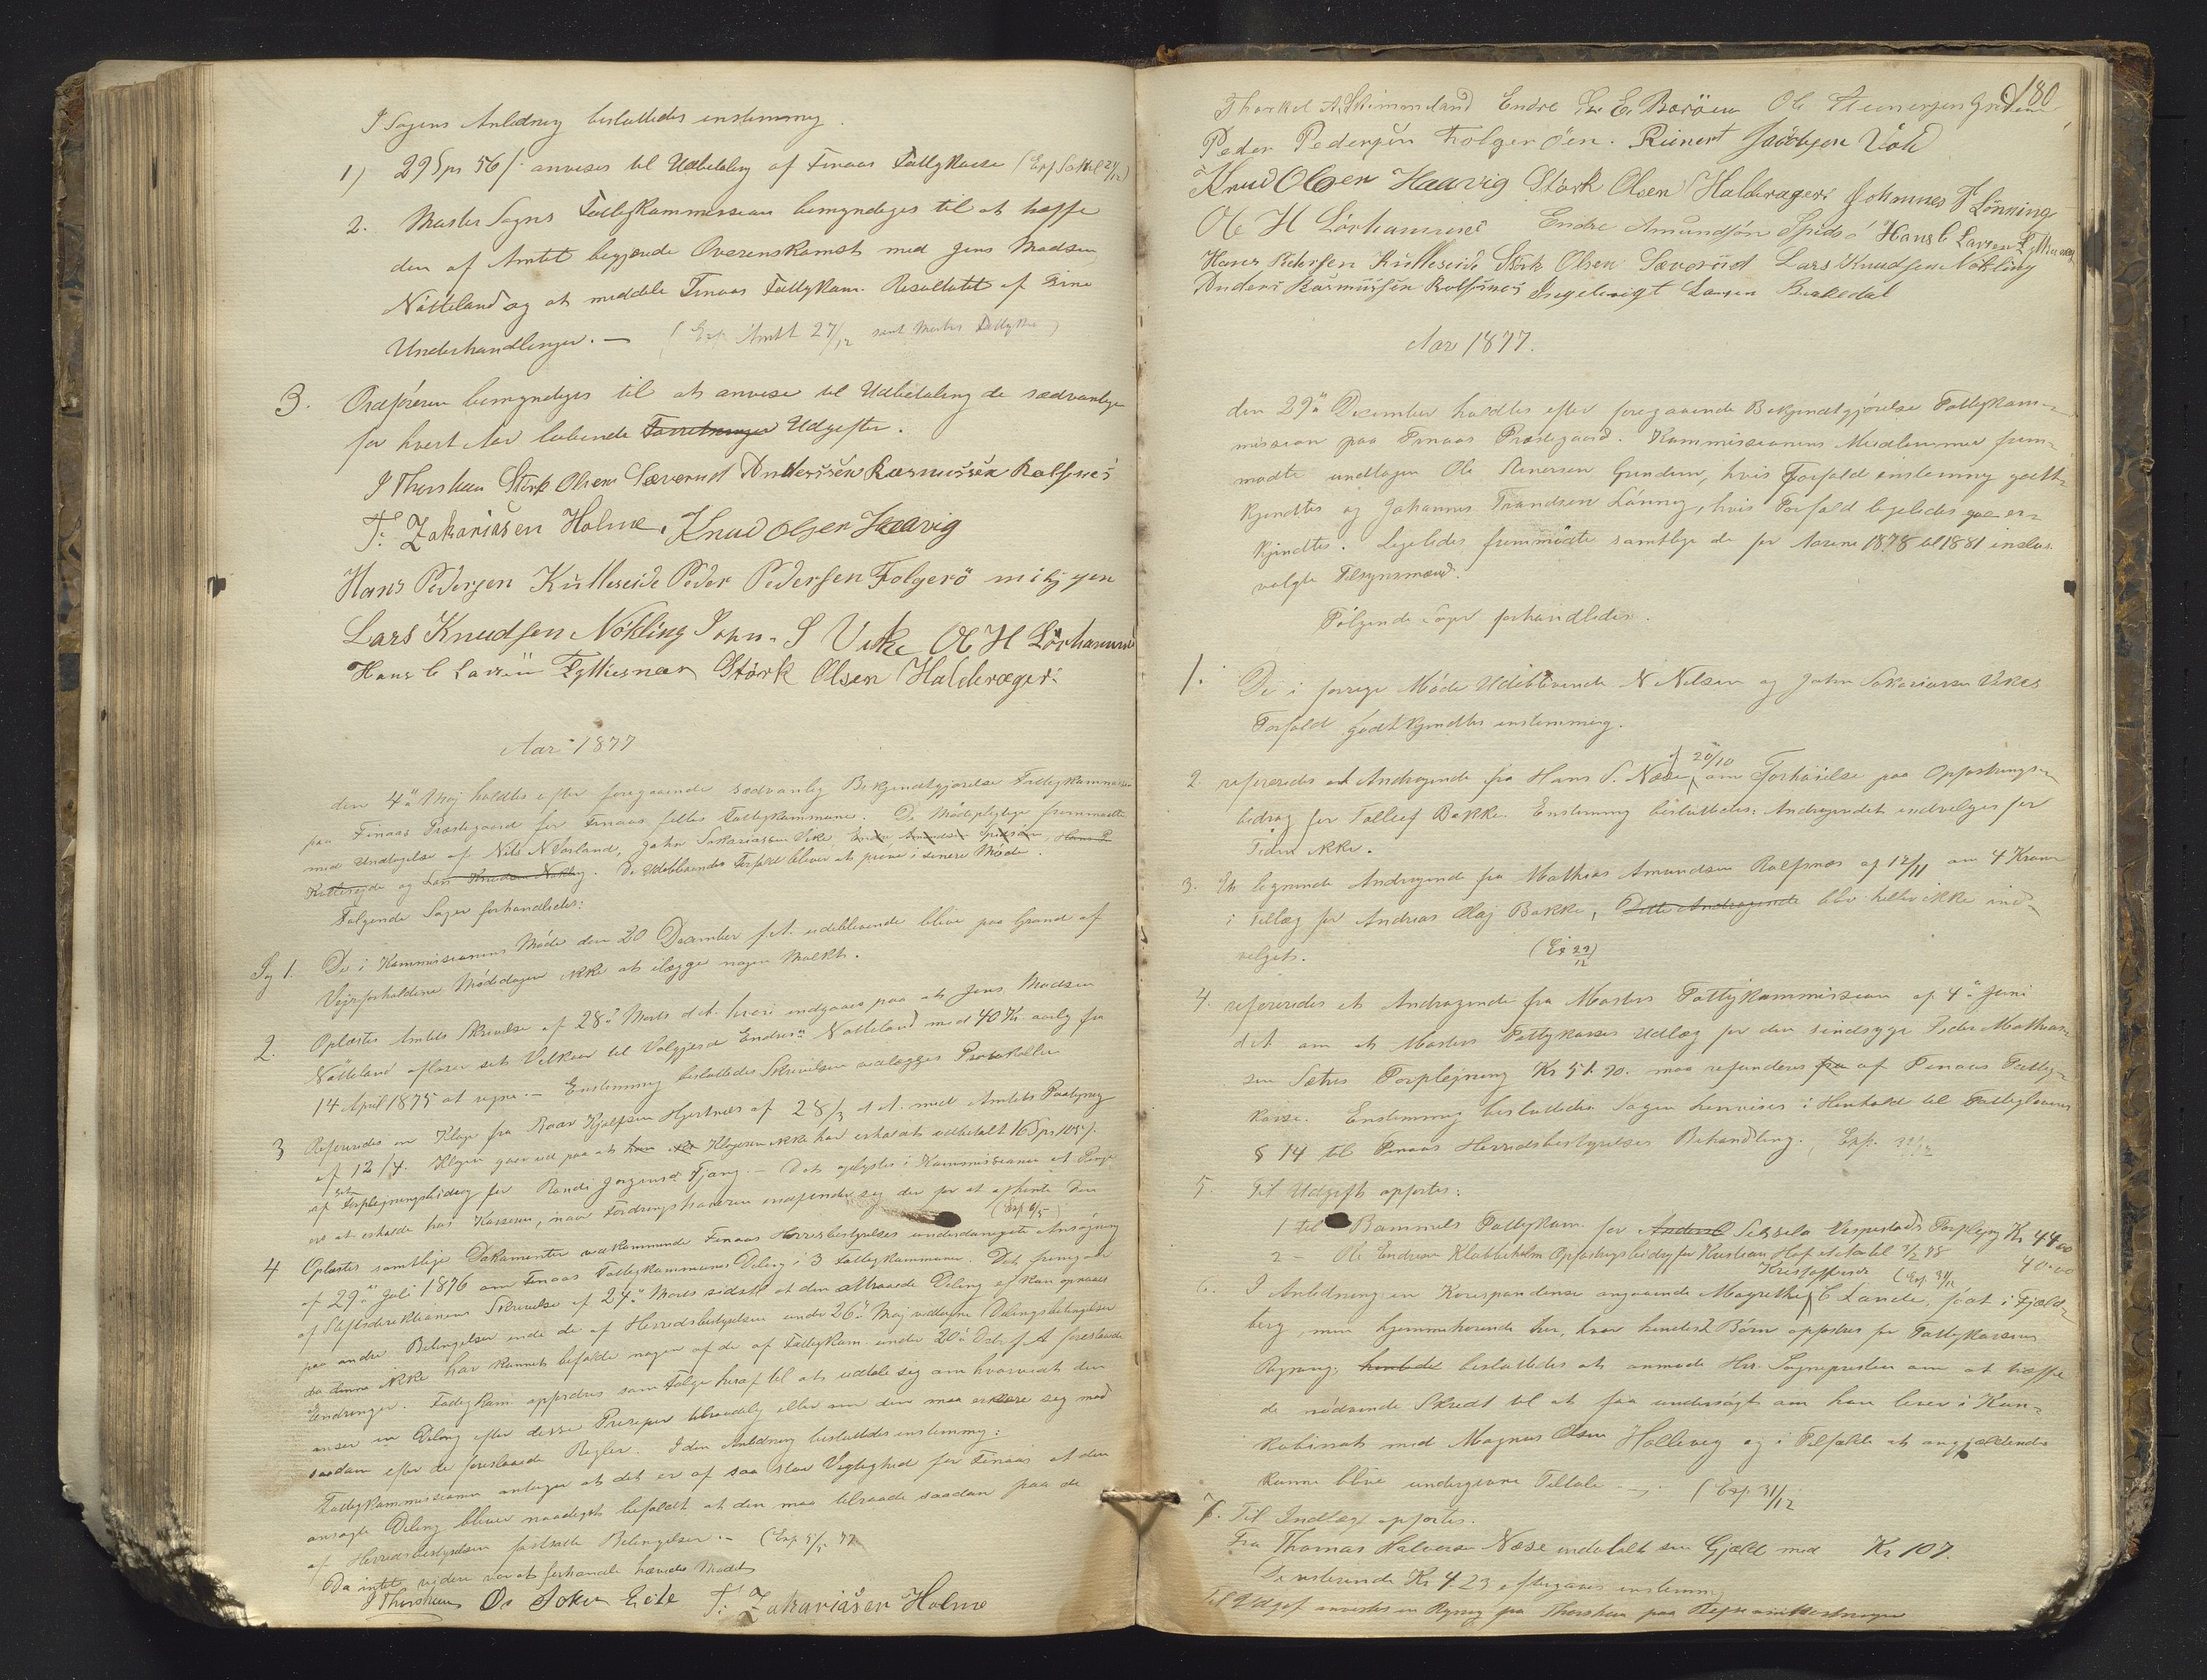 I Sagens Anledning besluttedes enstemmig
1) 29 Spr 56 s. anvises til Udbetaling af Finaas Fattigkasse (Exp
2. Moster Sogns Fattigkommission bemyndiges til at træffe
den af Amtet begjærede Overenskomst med Jens Madsen
Nötteland og at meddele Finaas Fattigkom. Resultatet af sine
Underhandlinger. — (Exp. Amtet 27/12 samt Mosters Fattigkm)
3. Ordföreren bemyndiges til at anvise til Udbetaling de sædvanlige
for hvert Aar löbende Forretninger Udgifter.
J Thorsheim Störk Olsen Sæverud Anderssen Rasmussen Rolfsnes
T. Zakariasen Holme. Knud Olsen Haavig
Hans Pedersen Kulleseide Peder Pedersen Folgerö
Lars Knudsen Nökling John. S Vike Ole H Lörhammer
Hans C Larsen Fylkesnæs Störk Olsen Haldorager
Aar 1877
den 4de Maj holdtes efter foregaaende sædvanlig Bekjendtgjörelse Fattigkommission
paa Finaas Præstegaard for Finaas fælles Fattigkommune. De Mödepligtige fremmödte
med Undtagelse af Nils N Vorland, John Sakariassen Vike, Endre Amundsen Spidsöen, Hans P.
Kulleseide og Lars Knudsen Nökling. De Udeblivendes Forfald bliver at pröve i senere Möde.
Fölgende Sager forhandledes:
Sag 1. De i Kommissionens Möde den 20 December f. A. udeblivende blive paa Grund af
Vejrforholdene Mödedagen ikke at ilægge nogen Mulkt.
2. Oplæstes Amtets Skrivelse af 28de Marts d.A. hvori indgaaes paa at Jens Madsen
Nötteland aflöser sit Vilkaar til Volgjerd Endresd. Nötteland med 40 Kr. aarlig fra
14 April 1875 at regne. — Enstemmig besluttedes Skrivelsen vedlægges Protokollen
3 Refereredes en Klage fra Roar Kjelfsen Hjertnæs af 28/3 d A. med Amtets Paategning
af 12/4. Klagen gaar ud paa at han ikke Klageren ikke har erholdt udbetalt 16 Spr 105 s.
af Forplejningsbidrag for Randi Jorgensd. Tjong. — Det oplystes i Kommissionen at Penge
er at erholde hos Kassereren, naar Fordringshaveren indfinder sig der for at afhente den
(Exp 9/5)
4 Oplæstes samtlige Dokumenter vedkommende Finaas Herredsbestyrelses underdanigste Ansögning
af 29de Juli 1876 om Finaas Fattigkommunes Deling i 3 Fattigkommuner. Det fremgaar
af Stiftsdirektionens Skrivelse af 24de Marts sidstl. at den attraaede Deling ej kan opnaaes
paa andre Betingelser end de af Herredsbestyrelsen under 26de Maj vedtagne Delingsbetingelser
da denne ikke har kunnet befölge nogen af de af Fattigkom. under 20de Dcb. f A foreslaaede
Endringer. Fattigkom. opfordres som Fölge heraf til at udtale sig om hvorvidt den
anser en Deling efter disse Principer tilraadelig eller om den maa erklære sig mod
saadan efter de foreslaaede Regler. I den Anledning besluttedes enstemmig:
Fattigkommissionen antager at det er af saa stor Vigtighed for Finaas at den
ansögte Deling bliver naadigst befalet at den maa tilraade saadan paa de
af Herredsbestyrelsen fastsatte Betingelser. — (Exp 9/5 77
Da intet videre var at forhandle hævedes Mödet
J Thorsheim Ole Joken Eide T. Zakariasen Holme
180
Thorkel A. Skimmeland Endre Endre E. Boröen Ole Steinersen Grindem
Peder Pedersen Folgeröen. Reinert Jacobsen Vold
Knud Olsen Haavig Störk Olsen Haldorager Johannes T Lönning
Ole H Lörhammer Endre Amundsön Spidsö Hans C Larsen Fylkesnæs
Hans Pedersen Kulleseide Störk Olsen Sæveröd Lars Knudsen Nökling
Anders Rasmussen Rolfsnes Ingebrigt Larsen Birkedal
Aar 1877.
den 29de December holdtes efter foregaaende Bekjendtgjörelse Fattigkom-
mission paa Finaas Præstegaard. Kommissionens Medlemmer frem-
mödte undtagen Ole Steinersen Grindem, hvis Forfald enstemmig godt-
kjendtes og Johannes Trondsen Lönning, hvis Forfald ligeledes er-
kjendtes. Ligeledes fremmödte samtlige de for Aarene 1878 til 1881 inclus.
valgte Tilsynsmænd.
Fölgende Sager forhandledes.
1. De i forrige Möde Udeblivende N Nilsen og John Sakariassen Vikes
Forfald godtkjendtes enstemmig.
2. refereredes et Andragende fra Hans S. Næse af 20/10 om Forhöielse paa Opfostrings-
bidrag for Tollef Bakke. Enstemmig besluttedes: Andragendet indvilges for
Tiden ikke.
3. Et lignende Andragende fra Mathias Amundsen Rolfsnæs af 12/11 om 4 Kroner
i Tillæg for Andreas Olaj Bakke, Dette Andragende blev heller ikke ind-
vilget. (Ex 29/12)
4. refereredes et Andragende fra Mosters Fattigkommission af 4de Juni
d.A. om at Mosters Fattigkasses Udlæg for den sindssyge Peder Mathias-
sen Sætres Forplejning Kr 51.90. maa refunderes fra af Finaas Fattig-
kasse. Enstemmig besluttedes Sagen henvises i Henhold til Fattiglovens
§ 14 til Finaas Herredsbestyrelses Behandling. (Exp. 31/12
5. Til Udgift opförtes:
1 til Bömmels Fattigkom. for Andersd. Sissela Vespestads Forplejng Kr 44 00
2 – Ole Endresen Klubbeholm Opfostringsbidrag for Kristian 40.00
6. I Anledning en Korrespondense angaaende Magrethe Kristoffersd. C Lande, föat i Fjæld-
(Exp. 31/12
berg, men hjemmehörende her, hvor hendes 2 Börn opfostres for Fattigkassens
Regning, besluttedes at anmode Hr. Sognepresten om at træffe
de nödvendige Skridt til at faa undersögt om hun lever i Kon-
kubinat med Magnus Olsen Hollevig og i Tilfælde at angjældende
kunne blive undergivne Tiltale —. (Exp. 31/12
7. Til Indtægt opförtes.
Fra Thomas Halvorsen Næse indbetalt sin Gjæld med Kr 107.
De resterende Kr 4.23 eftergaves enstemmig
Til Udgift anvistes en Regning fra Thorsheim paa